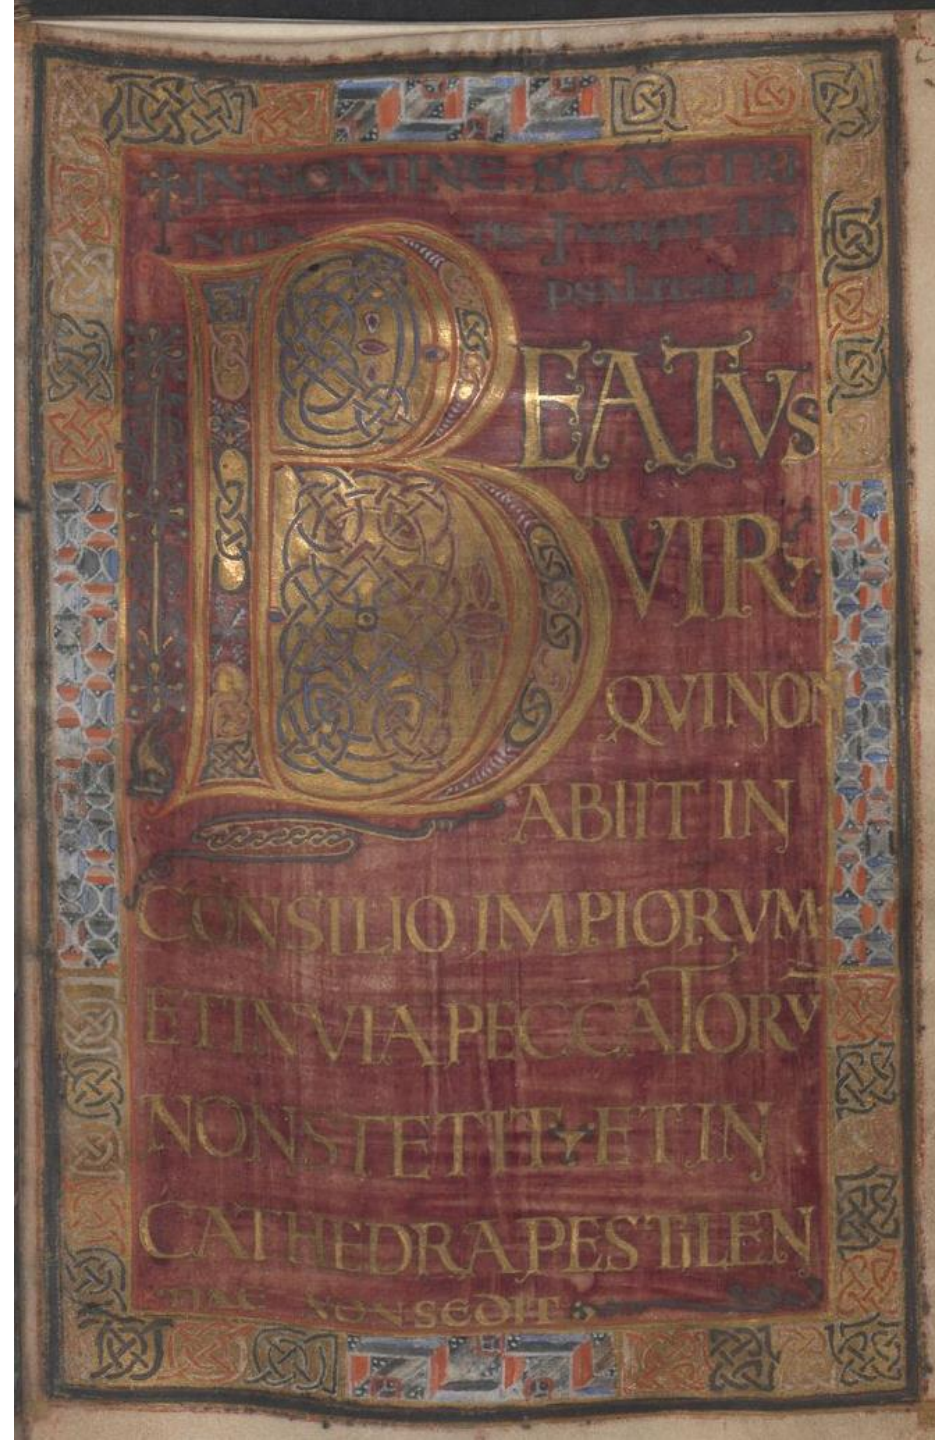 IN NOMINE SCAE TRI
NITA TIS Incipit Lib
psalmorum
BEATVS
VIR
QVI NON
ABIIT IN
CONSILIO IMPIORVM
ET IN VIA PECCATORV̅
NON STETIT ET IN
CATHEDRA PESTILEN
TIAE NON SEDIT